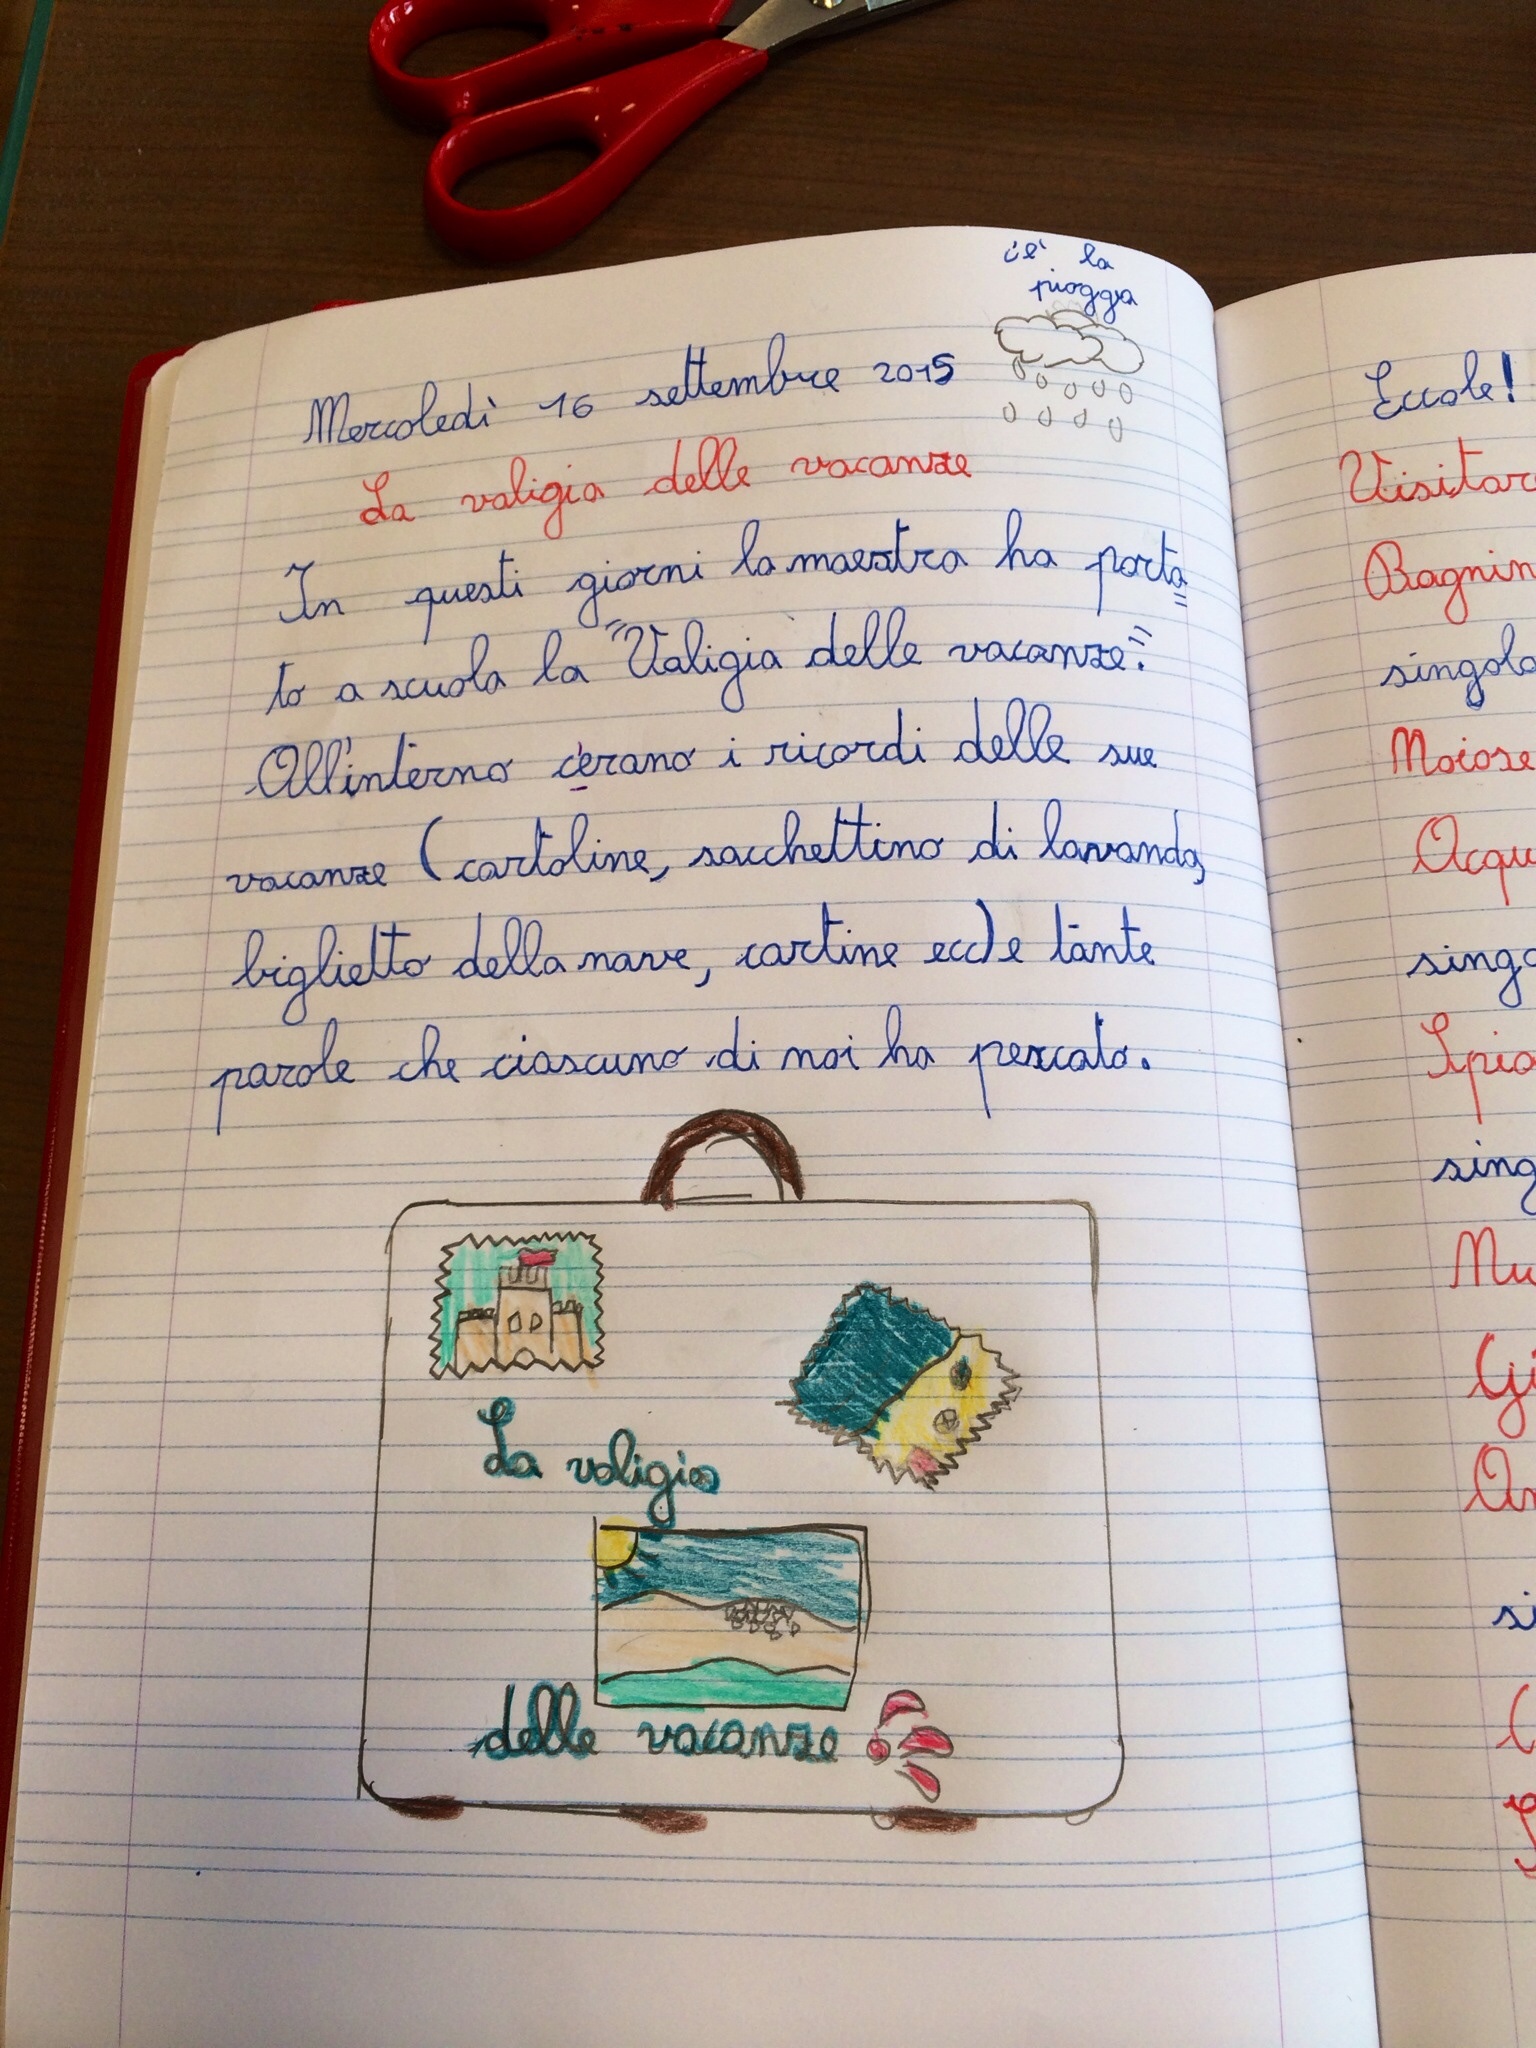 c'è la
pioggia
Mercoledì 16 settembre 2015
La valigia delle vacanze
In questi giorni la maestra ha porta=
to a scuola la "Valigia delle vacanze".
All'interno c'erano i ricordi delle sue
vacanze (cartoline, sacchettino di lavanda,
biglietto della nave, cartine ecc) e tante
parole che ciascuno di noi ha pescato.
La valigia
delle vacanze
Eccole!
Visitar
Bagnin
singola
Noiose
Acqu
singo
Spia
sing
Mu
Gi
An
si